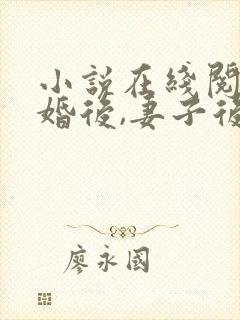 小說在綫閱
婚後,妻子後
廖永國